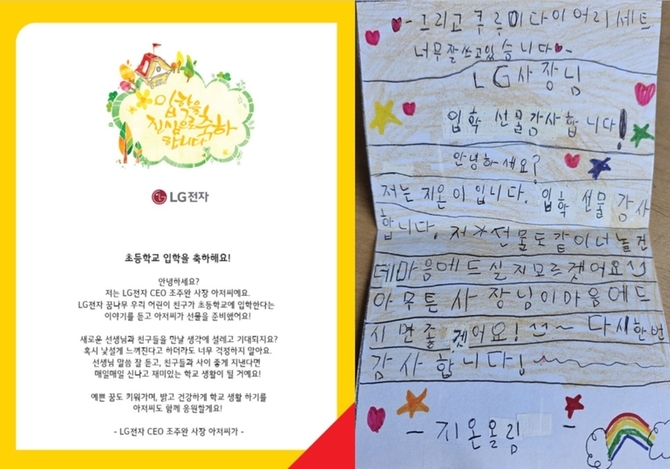 입학을
진심으로 축하
합니다
LG전자
초등학교 입학을 축하해요!
안녕하세요?
저는 LG전자 CEO 조주완 사장 아저씨예요.
LG전자 꿈나무 우리 어린이 친구가 초등학교에 입학한다는
이야기를 듣고 아저씨가 선물을 준비했어요!
새로운 선생님과 친구들을 만날 생각에 설레고 기대되지요?
혹시 낯설게 느껴진다고 하더라도 너무 걱정하지 말아요.
선생님 말씀 잘 듣고, 친구들과 사이 좋게 지낸다면
매일매일 신나고 재미있는 학교 생활이 될 거예요!
예쁜 꿈도 키워가며, 밝고 건강하게 학교 생활 하기를
아저씨도 함께 응원할게요!
- LG전자 CEO 조주완 사장 아저씨가 -
그리고 쿠루미다이어리세트
너무잘쓰고있습니다
LG사장님
입학 선물감사합니다!
안녕하세요?
저는 지온이입니다. 입학 선물 감사
합니다. 저 선물도 같이너놀건
데마음에드실지모르겠어요
아무튼 사장님이마음에드
시면좋겠어요! ~ 다시한번
감사합니다!
- 지온올림 -